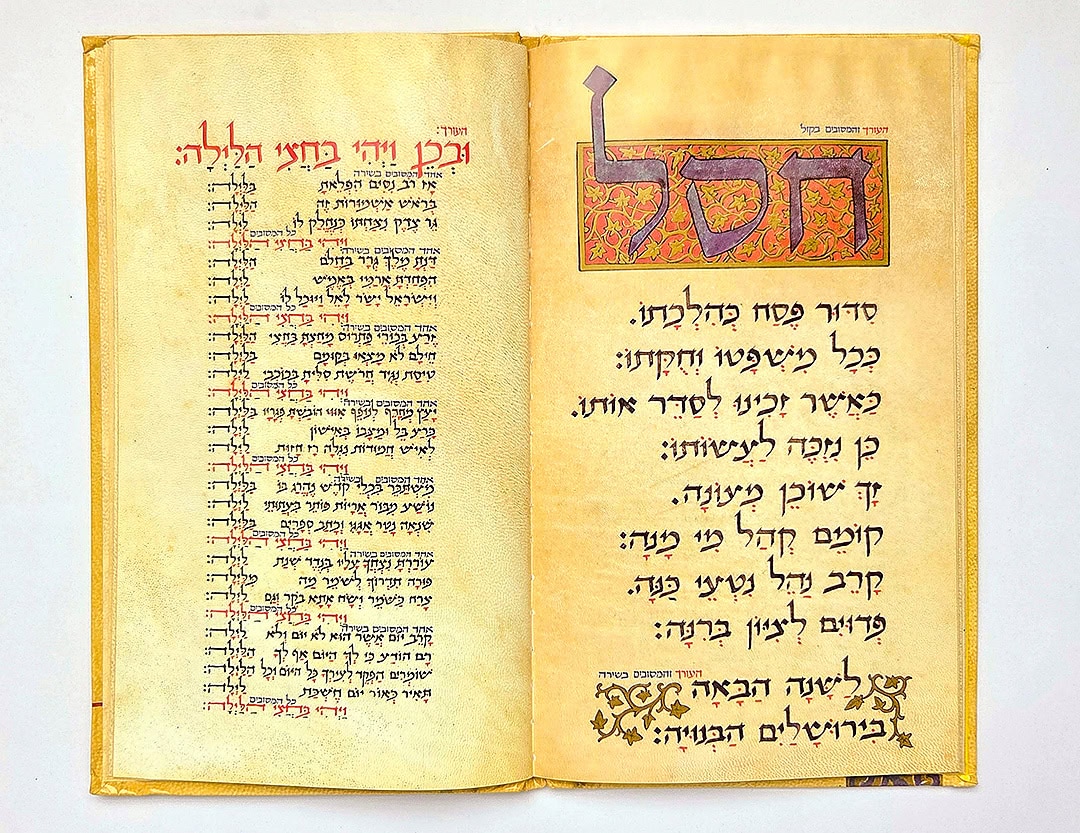 העורך והמסובים בקול
חסל
סִדּוּר פֶּסַח כְּהִלְכָתוֹ.
כְּכָל מִשְׁפָּטוֹ וְחֻקָּתוֹ:
כַּאֲשֶׁר זָכִינוּ לְסַדֵּר אוֹתוֹ.
כֵּן נִזְכֶּה לַעֲשׂוֹתוֹ:
זָךְ שׁוֹכֵן מְעוֹנָה.
קוֹמֵם קְהַל מִי מָנָה:
קָרֵב נַהֵל נִטְעֵי כַנָּה.
פְּדוּיִם לְצִיּוֹן בְּרִנָּה:
העורך והמסובים בשירה
לְשָׁנָה הַבָּאָה
בִּירוּשָׁלַיִם הַבְּנוּיָה:
העורך:
וּבְכֵן וַיְהִי בַּחֲצִי הַלַּיְלָה:
אחד המסובים בשירה
אָז רֹב נִסִּים הִפְלֵאתָ בַּלַּיְלָה:
בְּרֹאשׁ אַשְׁמוּרוֹת זֶה הַלַּיְלָה:
גֵּר צֶדֶק נִצַּחְתּוֹ כְּנֶחֱלַק לוֹ לַיְלָה:
כל המסובים
וַיְהִי בַּחֲצִי הַלַּיְלָה:
אחד המסובים בשירה:
דַּנְתָּ מֶלֶךְ גְּרָר בַּחֲלוֹם הַלַּיְלָה:
הִפְחַדְתָּ אֲרַמִּי בְּאֶמֶשׁ לַיְלָה:
וְיִשְׂרָאֵל יָשַׂר לָאֵל וַיּוּכַל לוֹ לַיְלָה:
כל המסובים
וַיְהִי בַּחֲצִי הַלַּיְלָה:
אחד המסובים בשירה:
זֶרַע בְּכוֹרֵי פַתְרוֹס מָחַצְתָּ בַּחֲצִי הַלַּיְלָה:
חֵילָם לֹא מָצְאוּ בְּקוּמָם בַּלַּיְלָה:
טִיסַת נְגִיד חֲרֹשֶׁת סִלִּיתָ בְּכוֹכְבֵי לַיְלָה:
כל המסובים
וַיְהִי בַּחֲצִי הַלַּיְלָה:
אחד המסובים בשירה:
יָעַץ מְחָרֵף לְנוֹפֵף אִוּוּי הוֹבַשְׁתָּ פְגָרָיו בַּלַּיְלָה:
כָּרַע בֵּל וּמַצָּבוֹ בְּאִישׁוֹן לַיְלָה:
לְאִישׁ חֲמוּדוֹת נִגְלָה רָז חֲזוֹת לַיְלָה:
כל המסובים
וַיְהִי בַּחֲצִי הַלַּיְלָה:
אחד המסובים בשירה:
מִשְׁתַּכֵּר בִּכְלֵי קֹדֶשׁ נֶהֱרַג בּוֹ בַּלַּיְלָה:
נוֹשַׁע מִבּוֹר אֲרָיוֹת פּוֹתֵר בִּעֲתוּתֵי לַיְלָה:
שִׂנְאָה נָטַר אֲגָגִי וְכָתַב סְפָרִים בַּלַּיְלָה:
כל המסובים
וַיְהִי בַּחֲצִי הַלַּיְלָה:
אחד המסובים בשירה:
עוֹרַרְתָּ נִצְחֲךָ עָלָיו בְּנֶדֶד שְׁנַת לַיְלָה:
פּוּרָה תִדְרוֹךְ לְשׁוֹמֵר מַה מִּלַּיְלָה:
צָרַח כַּשּׁוֹמֵר וְשָׂח אָתָא בֹקֶר וְגַם לַיְלָה:
כל המסובים
וַיְהִי בַּחֲצִי הַלַּיְלָה:
אחד המסובים בשירה:
קָרֵב יוֹם אֲשֶׁר הוּא לֹא יוֹם וְלֹא לַיְלָה:
רָם הוֹדַע כִּי לְךָ הַיּוֹם אַף לְךָ הַלַּיְלָה:
שׁוֹמְרִים הַפְקֵד לְעִירְךָ כָּל הַיּוֹם וְכָל הַלַּיְלָה:
תָּאִיר כְּאוֹר יוֹם חֶשְׁכַת לַיְלָה:
כל המסובים
וַיְהִי בַּחֲצִי הַלַּיְלָה: